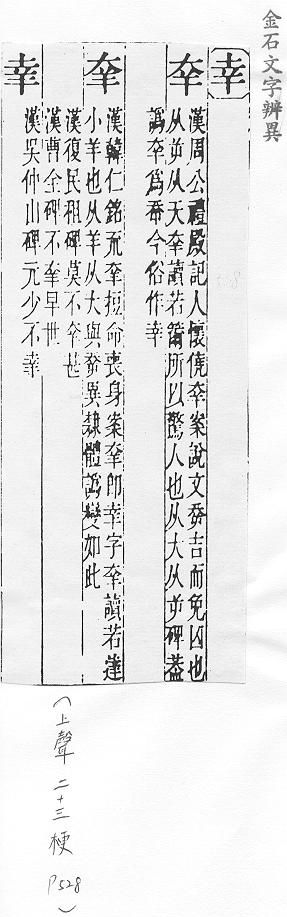 金石文字辨異
幸
㚔
漢周公禮殿記人懷僥㚔案說文㚔吉而免凶也
从屰从夭㚔讀若籋所以驚人也从大从屰碑蓋
譌㚔爲今俗作幸
羍
漢韓仁銘充羍短命喪身案羍卽幸字羍讀若達
小羊也从羊从大與㚔異隸體譌變如此
漢復民租碑莫不㚔甚
漢曹全碑不幸早世
幸
漢吳仲山碑元少不幸
(上聲 二十三 梗 P528)